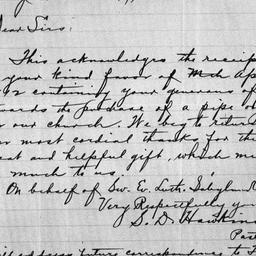 ear Sirs:
This acknowledges the receip
your kind favor of Mch
continuing your generous of
wards the purchase of a pipe o
our church. We beg to return
most cordial thanks for the
and helpful gift, which me
much to us.
On behalf of Sw. Ev. Luth.
Very Respectfully yo
S. D. Hawkins
Past
address future correspondence to